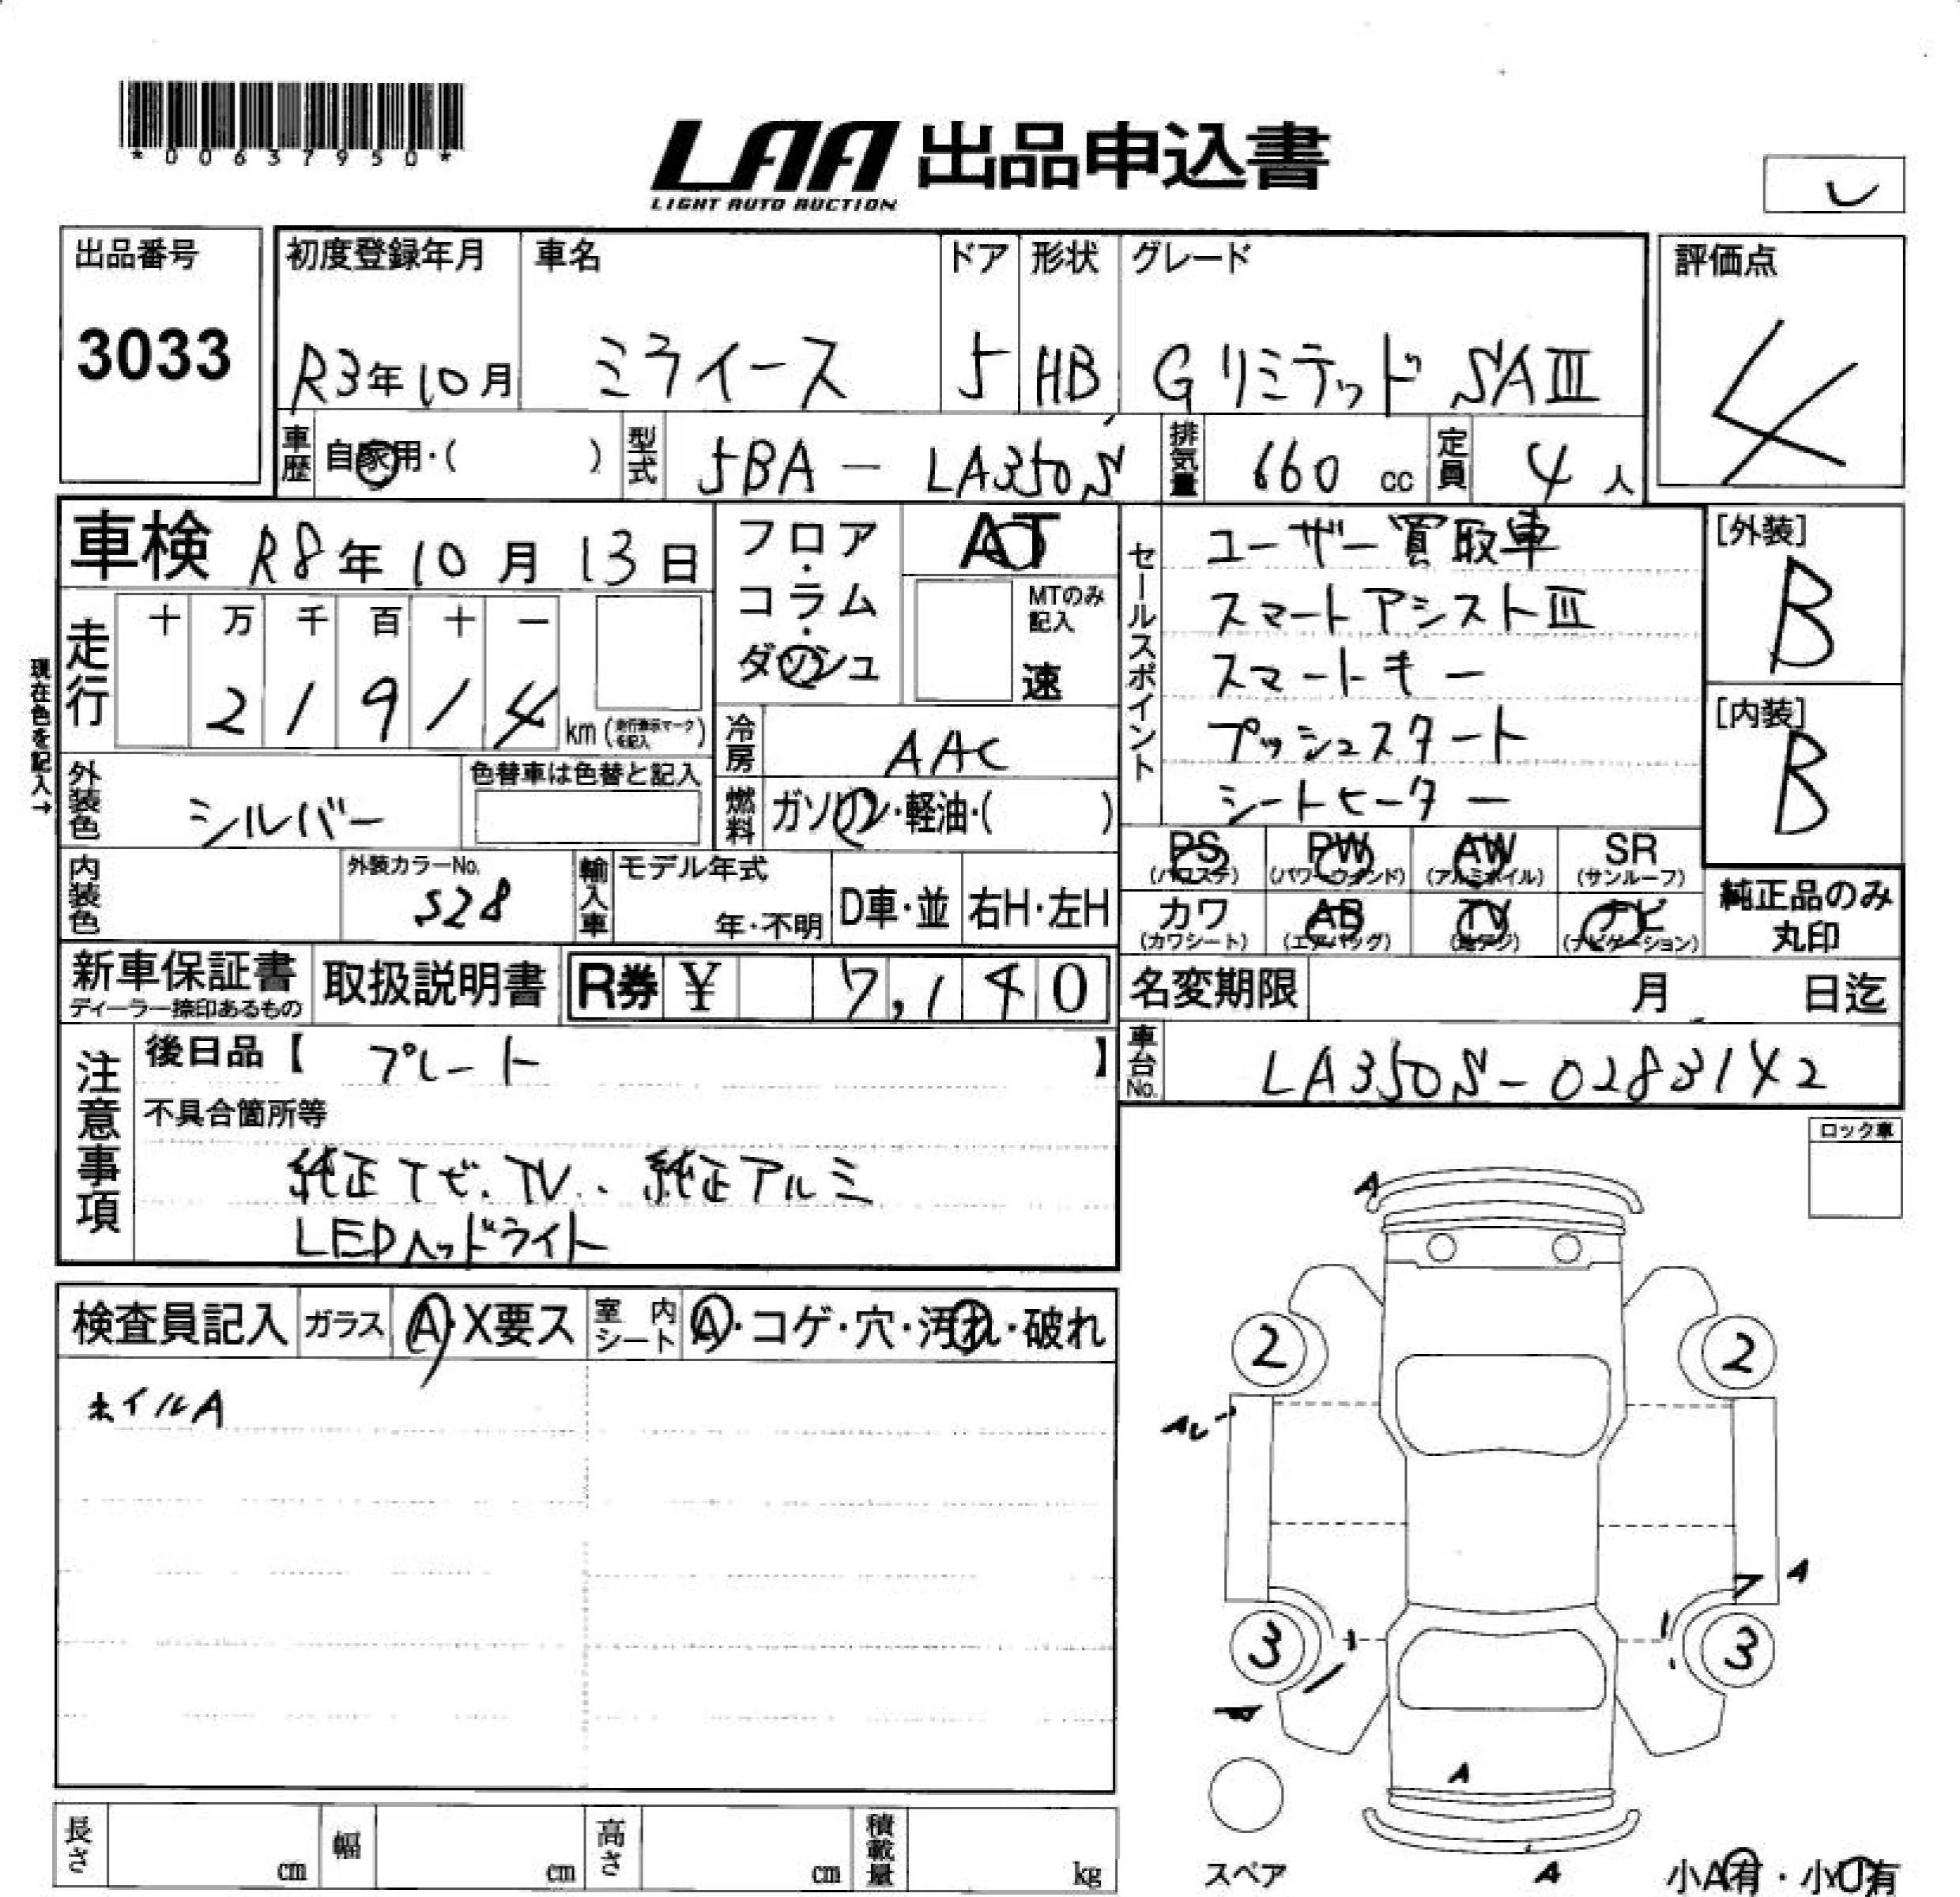 *00637950*
LAA 出品申込書
LIGHT AUTO AUCTION
出品番号
3033
初度登録年月 車名 ドア 形状 グレード
R3年10月 ミライース 5 HB Gリミテッド SAⅢ
評価点
4
車歴 自家用・( ) 型式 5BA - LA350S 排気量 660 cc 定員 4 人
車検 R8年10月13日
フロア・コラム・ダッシュ
AT
MTのみ記入
速
現在色を記入→
走行 十 万 千 百 十 一
2 1 9 1 4 km (走行表示マークを記入)
冷房 AAC
外装色 シルバー
色替車は色替と記入
燃料 ガソリン・軽油・( )
セールスポイント
ユーザー買取車
スマートアシストⅢ
スマートキー
プッシュスタート
シートヒーター
[外装]
B
[内装]
B
PS (パワステ) PW (パワーウインド) AW (アルミホイル) SR (サンルーフ)
カワ (カワシート) AB (エアバッグ) TV (地デジ) ナビ (ナビゲーション)
純正品のみ
丸印
内装色
外装カラーNo.
S28
輸入車 モデル年式
年・不明 D車・並 右H・左H
新車保証書
ディーラー捺印あるもの
取扱説明書
R券 ¥ 7,140
名変期限 月 日迄
車台No. LA350S-0283142
注意事項
後日品【 プレート 】
不具合箇所等
純正ナビ、TV、純正アルミ
LEDヘッドライト
ロック車
検査員記入 ガラス A・X要ス 室内シート A・コゲ・穴・汚れ・破れ
ホイルA
A
2 2
A
A
3 3
A
A
スペア
小A有・小U有
長さ cm 幅 cm 高さ cm 積載量 kg